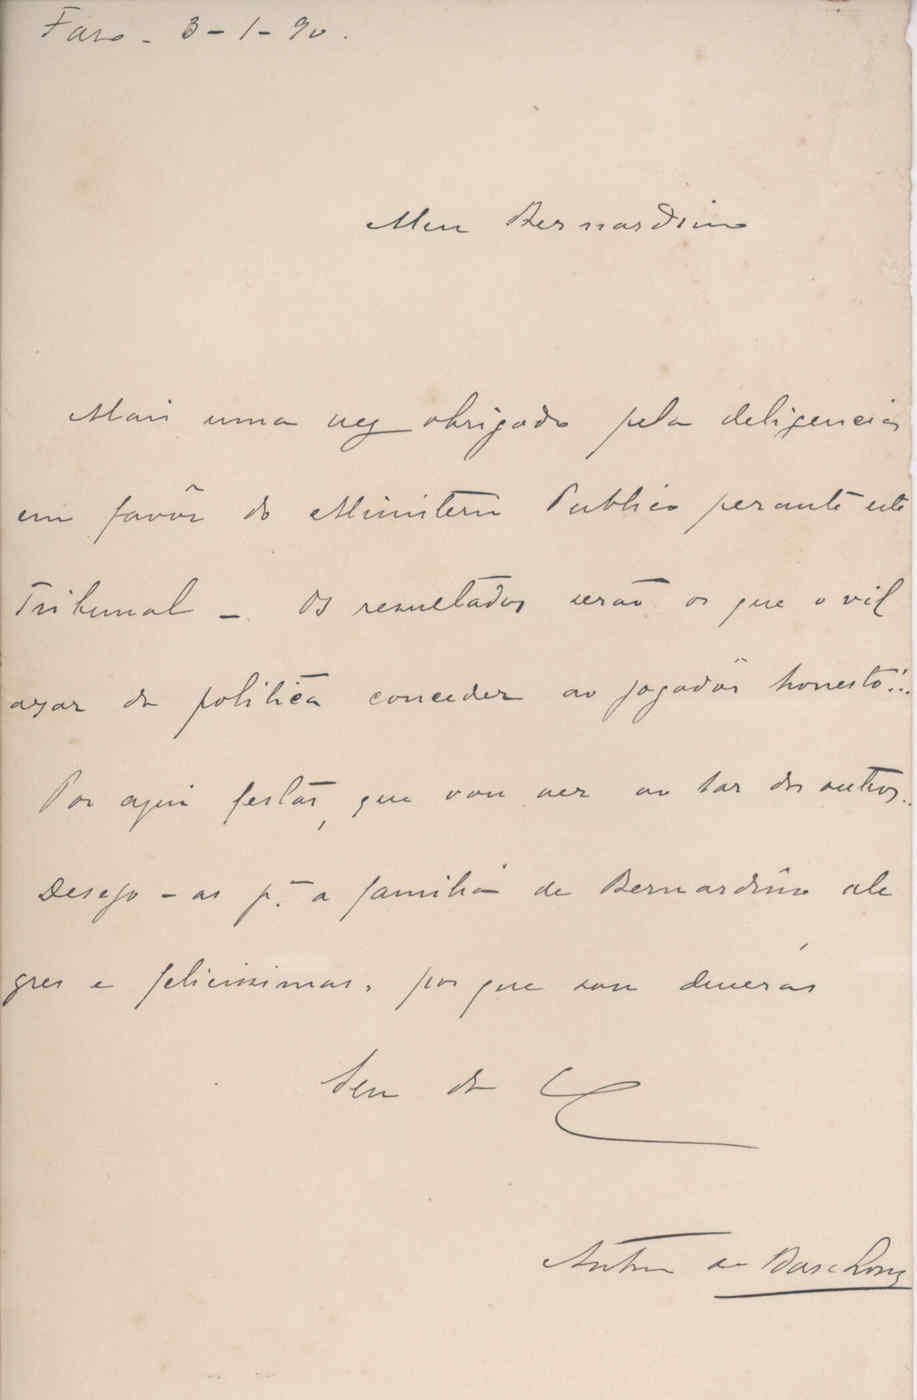 Faro - 3-1-90.
Meu Bernardino
Mais uma vez obrigado pela deligencia
em favôr do Ministerio Publico perante este
Tribunal - Os resultados serão os que o vil
azar da politica conceder ao jogadôr honesto!..
Por aqui festas, que vou ver ao lar dos outros..
Desejo-as p.ª a familia de Bernardino ale
gres e felicissimas, por que sou deveras
Seu do C
de